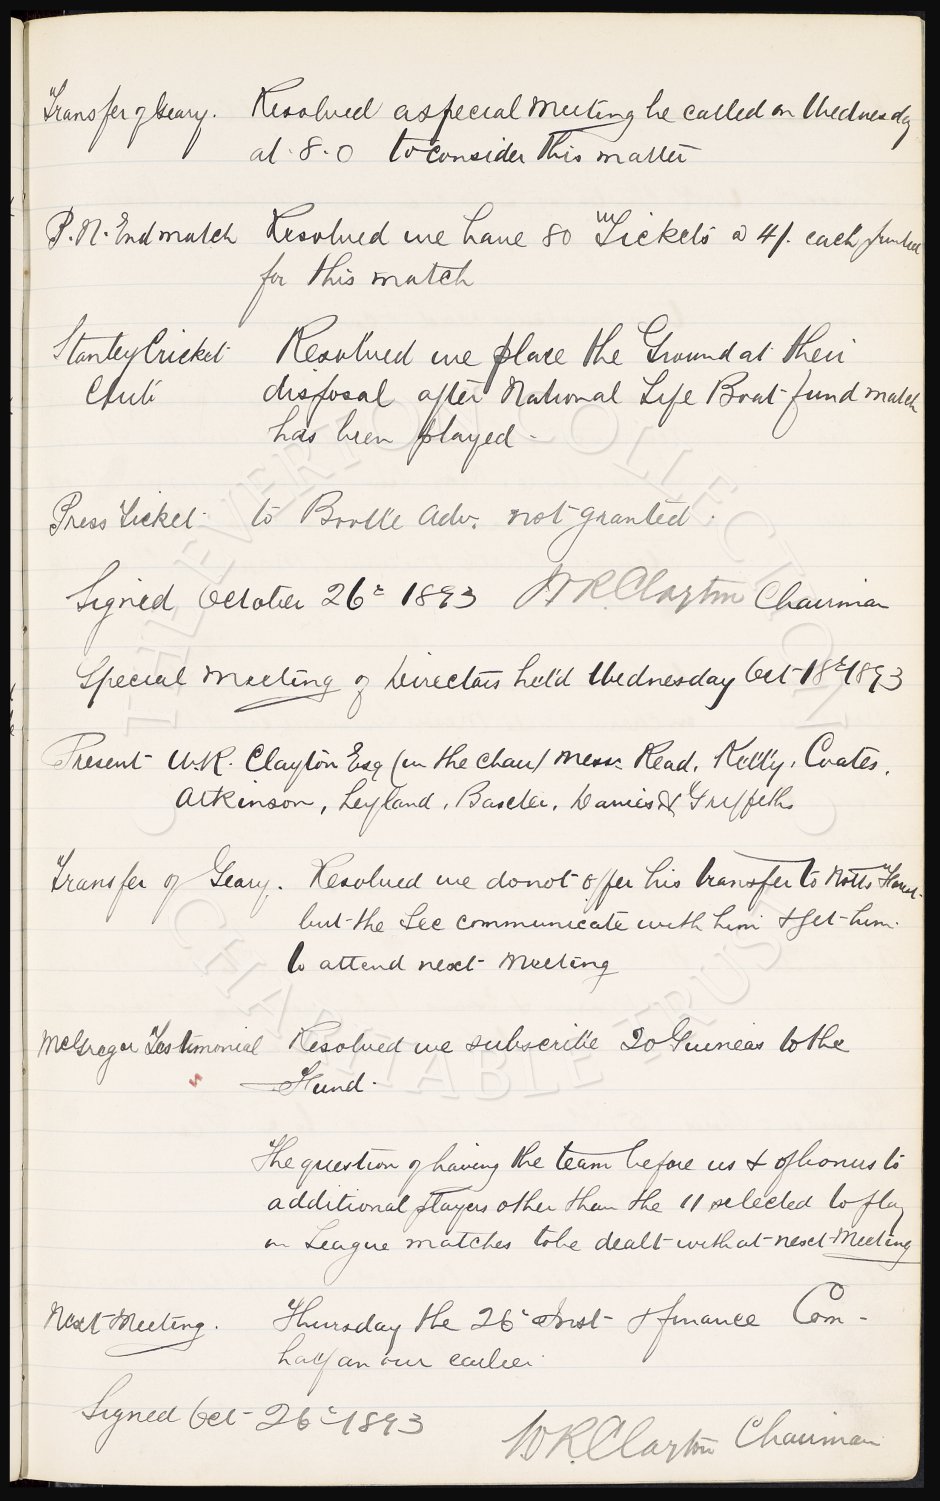 Transfer of Geary. Resolved a special Meeting be called on Wednesday
at 8.0 to consider this matter
P.N. End match Resolved we have 80 Tickets @ 4/- each printed
for this match
Stanley Cricket Resolved we place the Ground at their
Club disposal after National Life Boat fund match
has been played -
Press Ticket to Bootle Adv. not granted.
Signed October 26th 1893 W R Clayton Chairman
Special Meeting of Directors held Wednesday Oct 18th 1893
Present W.R. Clayton Esq (in the chair) Messrs Read, Kelly, Coates,
Atkinson, Leyland, Baxter, Davies & Griffiths
Transfer of Geary. Resolved we do not offer his transfer to Notts Forest
but the Sec communicate with him & get him
to attend next Meeting
McGregor Testimonial Resolved we subscribe 20 Guineas to the
Fund.
The question of having the team before us & of bonus to
additional players other than the 11 selected to play
in League matches to be dealt with at next Meeting
Next Meeting. Thursday the 26th Inst & finance Com -
half an our earlier.
Signed Oct 26th 1893
W R Clayton Chairman
THE EVERTON COLLECTION
CHARITABLE TRUST